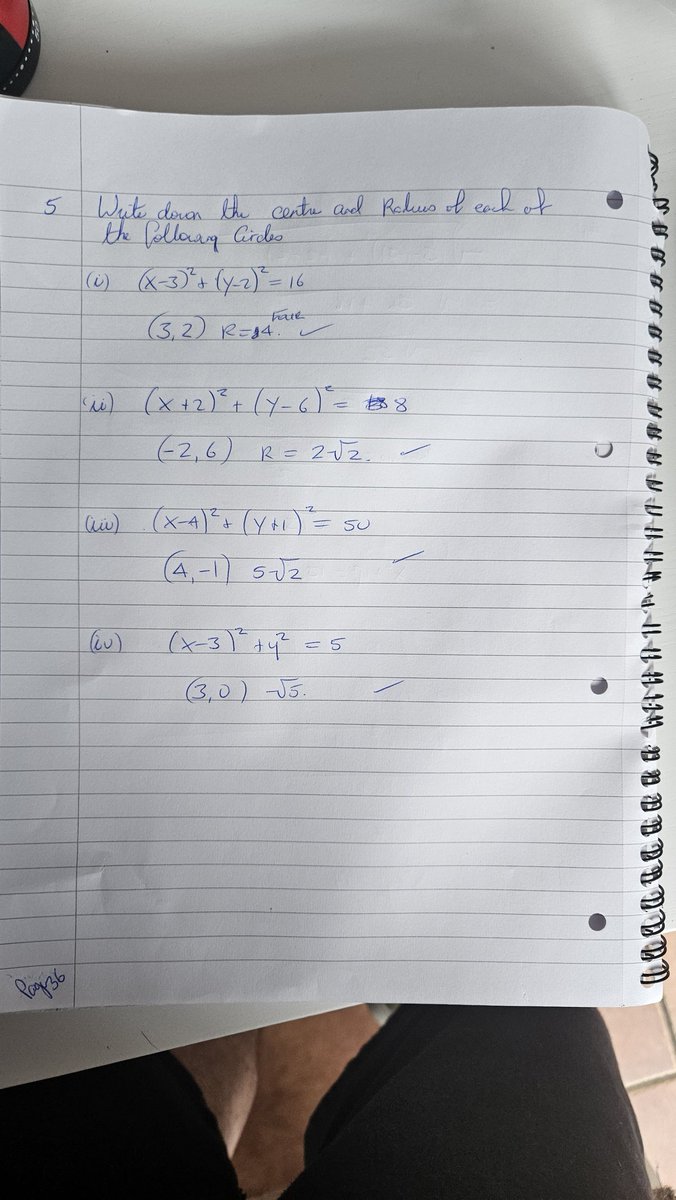 5 Write down the centre and Radius of each of
the following Circles
(i) (x-3)² + (y-2)² = 16
(3,2) R=4. Four ✓
(ii) (x+2)² + (y-6)² = 8
(-2,6) R = 2√2. ✓
(iii) (x-4)² + (y+1)² = 50
(4,-1) 5√2 ✓
(iv) (x-3)² + y² = 5
(3,0) √5. ✓
Page 36